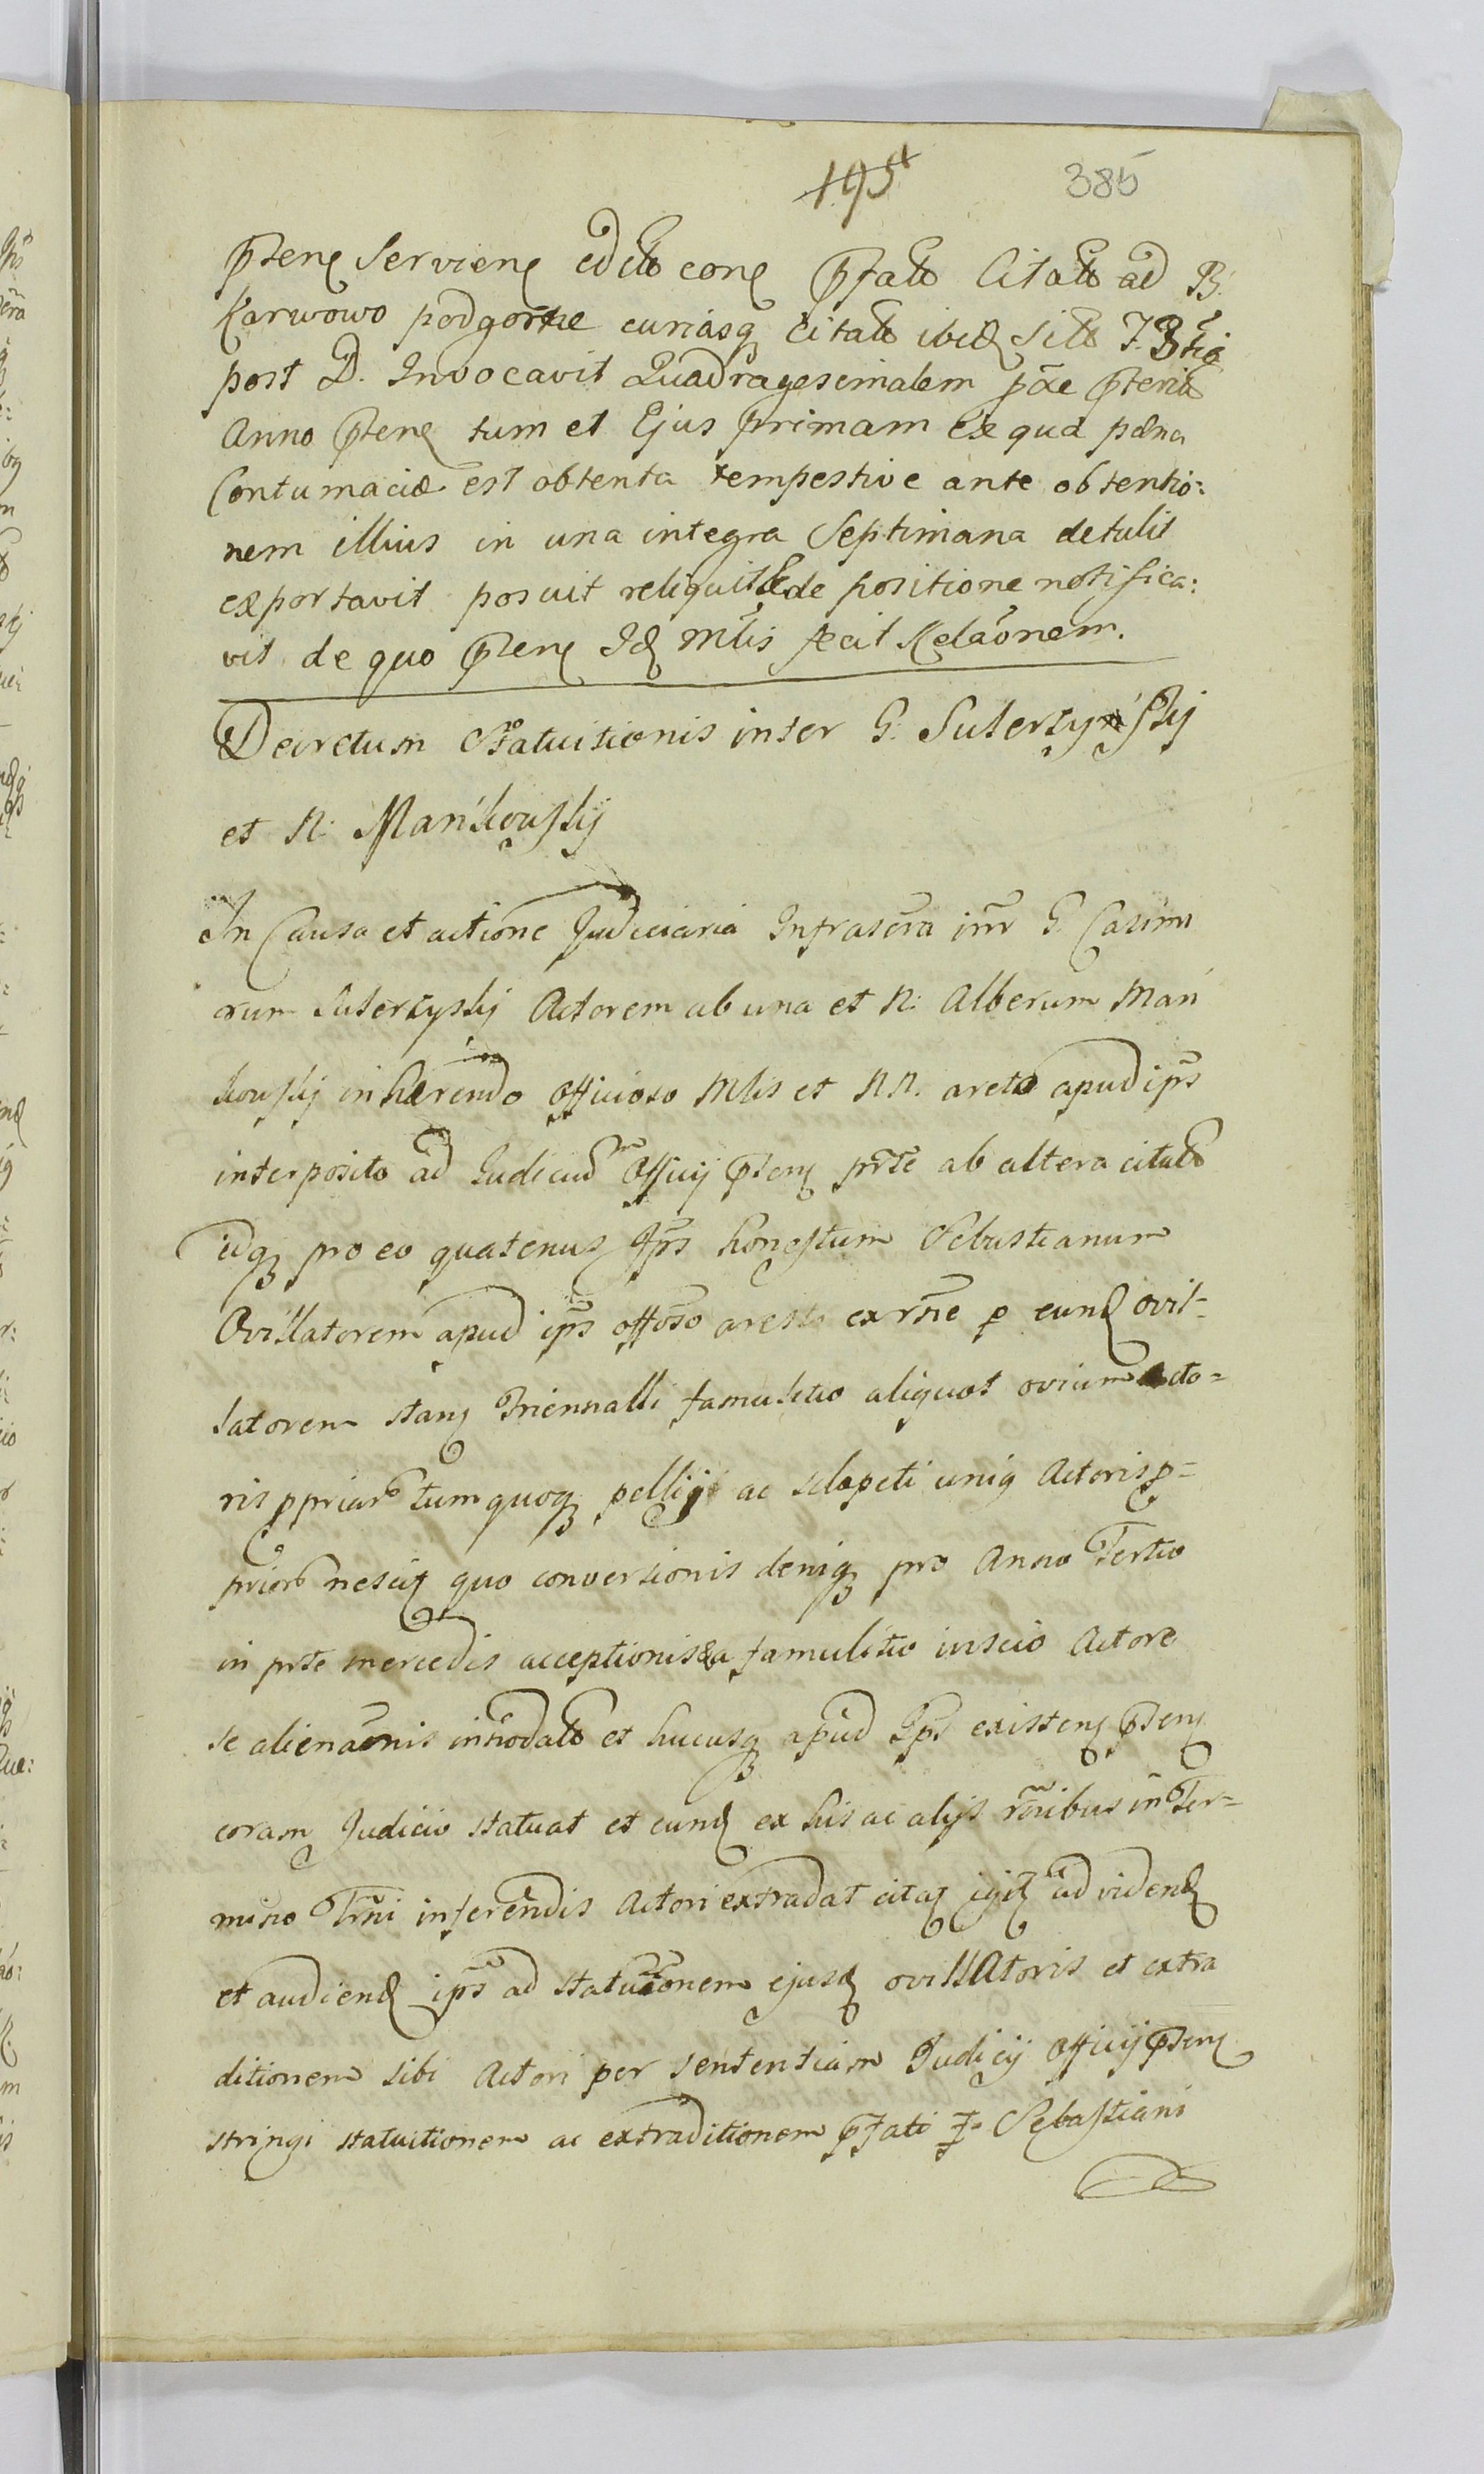 195 385
pñtens serviens edito cone pfato Citato ad B.
Karwowo podgorne curiasq citato ibid sito F. 3tia
post D. Invocavit Quadragesimalem pxe pterita
Anno pñten tum et Ejus primam Ex qua pæna
Contumaciæ est obtenta tempestive ante obtentio:
nem illius in una integra Septimana detulit
exportavit posuit reliquit & de positione notifica:
vit de quo pñten Id Mlis fecit Relaõnem.
Decretum Statuitionis inter G. Suterzyński
et N. Mańkouskij
In Causa et actione Judiciaria Infrascra inr G. Casimi
rum Suterzyskij Actorem ab una et N. Alberum Mań
kouskij inhærendo officioso Mlis et NN. aresto apud ips
interposito ad Judicium Officij pñten prte ab altera citato
idq pro eo quatenus Ips honestum Sebastianum
Ovillatorem apud ips offoso aresto exrñe p eund ovil-
latorem stan Triennalli famulitio aliquot ovium Acto-
ris ppriar tum quoq pellij ac sclopeti uniq Actoris p-
prior nescit quo conversionis deniq pro Anno Tertio
in prte mercedis acceptionis & a famulitio inscio Actore
se alienaõnis innodato et hucusq apud Ips existen pñten
coram Judicio statuat et eund ex his ac alijs rõnibus in Ter-
mino Trñi inferendis Actori extradat citat igit ad videnđ
et audienđ ips ad statuitionem ejusd ovillatoris et extra
ditionem sibi Actori per sententiam Judicij Officij pñten
stringi statuitionem ac extraditionem pfati F. Sebastiani